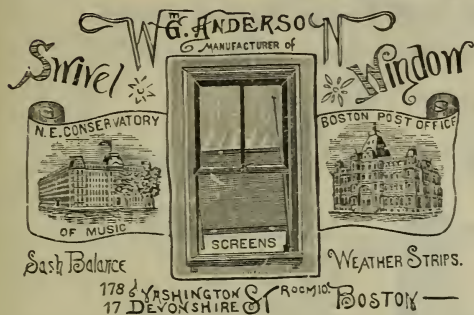 Wm G. ANDERSON
MANUFACTURER of
Swivel Window
N.E. CONSERVATORY
OF MUSIC
BOSTON POST OFFICE
SCREENS
Sash Balance
WEATHER STRIPS.
178 & WASHINGTON ST
17 DEVONSHIRE ST ROOM 10. BOSTON